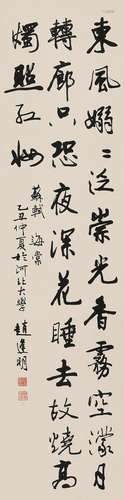 東風嫋〻泛崇光香霧空濛月
轉廊只恐夜深花睡去故燒高
燭照紅妝
蘇軾 海棠
乙丑仲夏於河北大學 趙進明